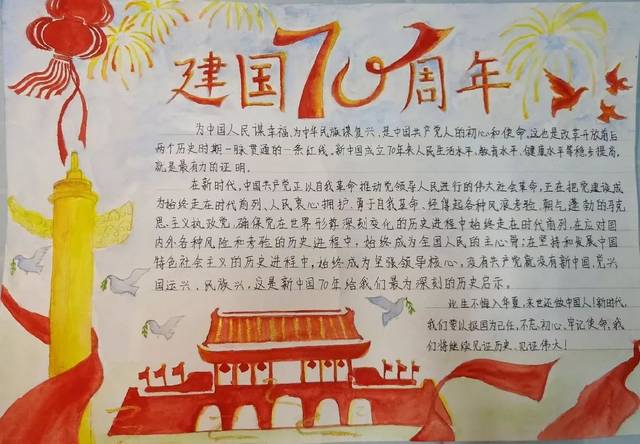 建国70周年
为中国人民谋幸福,为中华民族谋复兴,是中国共产党人的初心和使命,这也是改革开放前后
两个历史时期一脉贯通的一条红线。新中国成立70年来人民生活水平,教育水平,健康水平等稳步提高,
就是最有力的证明。
在新时代,中国共产党正以自我革命推动党领导人民进行的伟大社会革命,正在把党建设成
为始终走在时代前列、人民衷心拥护、勇于自我革命、经得起各种风浪考验、朝气蓬勃的马克
思主义执政党。确保党在世界形势深刻变化的历史进程中始终走在时代前列,在应对国
内外各种风险和考验的历史进程中,始终成为全国人民的主心骨;在坚持和发展中国
特色社会主义的历史进程中,始终成为坚强领导核心,没有共产党就没有新中国,党兴
国运兴、民族兴,这是新中国70年给我们最为深刻的历史启示。
此生不悔入华夏,来世还做中国人!新时代,
我们要以报国为己任,不忘初心,牢记使命,我
们将继续见证历史、见证伟大!